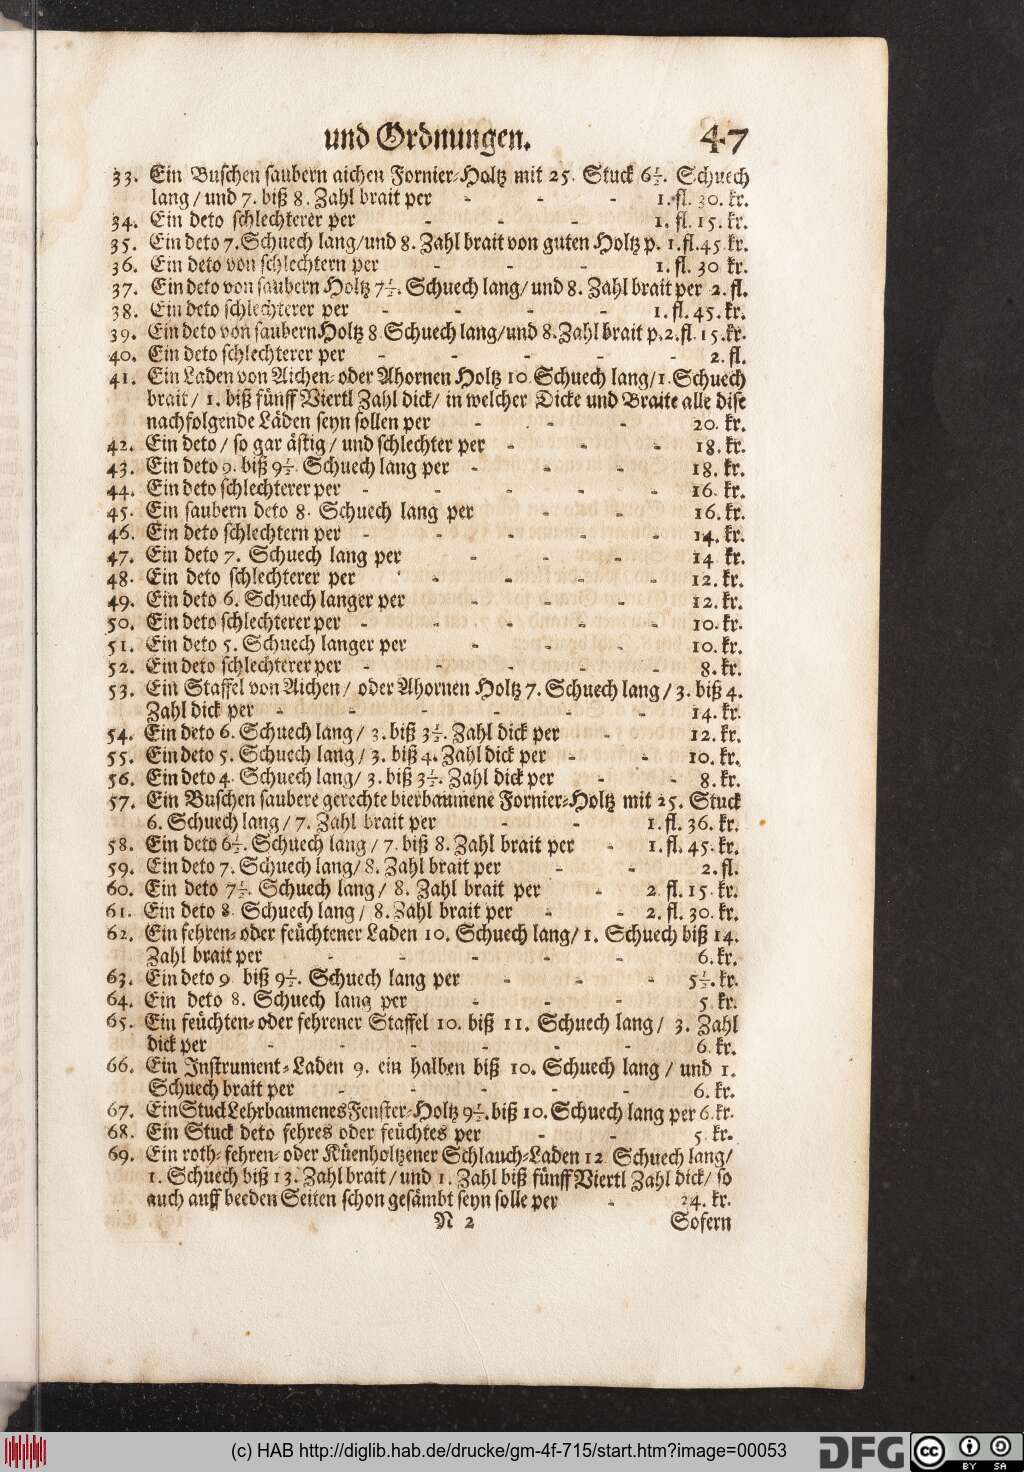 und Ordnungen. 47
33. Ein Buschen saubern aichen Fornier-Holtz mit 25. Stuck 6½. Schuech
lang / und 7. biß 8. Zahl brait per - - - 1. fl. 30. kr.
34. Ein deto schlechterer per - - - 1. fl. 15. kr.
35. Ein deto 7. Schuech lang/und 8. Zahl brait von guten Holtz p. 1. fl. 45 kr.
36. Ein deto von schlechtern per - - - 1. fl. 30 kr.
37. Ein deto von saubern Holtz 7½. Schuech lang/ und 8. Zahl brait per 2. fl.
38. Ein deto schlechterer per - - - - 1. fl. 45. kr.
39. Ein deto von saubern Holtz 8 Schuech lang/und 8. Zahl brait p. 2. fl. 15. kr.
40. Ein deto schlechterer per - - - - - 2. fl.
41. Ein Laden von Aichen- oder Ahornen Holtz 10 Schuech lang/ 1. Schuech
brait / 1. biß fünff Viertl Zahl dick/ in welcher Dicke und Braite alle dise
nachfolgende Läden seyn sollen per - - - 20. kr.
42. Ein deto / so gar ästig / und schlechter per - - - 18. kr.
43. Ein deto 9. biß 9½. Schuech lang per - - - 18. kr.
44. Ein deto schlechterer per - - - - - 16. kr.
45. Ein saubern deto 8. Schuech lang per - - 16. kr.
46. Ein deto schlechtern per - - - - - 14. kr.
47. Ein deto 7. Schuech lang per - - - 14 kr.
48. Ein deto schlechterer per - - - - 12. kr.
49. Ein deto 6. Schuech langer per - - - 12. kr.
50. Ein deto schlechterer per - - - - - 10. kr.
51. Ein deto 5. Schuech langer per - - - 10. kr.
52. Ein deto schlechterer per - - - - - 8. kr.
53. Ein Staffel von Aichen / oder Ahornen Holtz 7. Schuech lang / 3. biß 4.
Zahl dick per - - - - - - 14. kr.
54. Ein deto 6. Schuech lang / 3. biß 3½. Zahl dick per - 12. kr.
55. Ein deto 5. Schuech lang / 3. biß 4. Zahl dick per - - 10. kr.
56. Ein deto 4. Schuech lang/ 3. biß 3½. Zahl dick per - - 8. kr.
57. Ein Buschen saubere gerechte bierbaumene Fornier-Holtz mit 25. Stuck
6. Schuech lang / 7. Zahl brait per - - 1. fl. 36. kr.
58. Ein deto 6½. Schuech lang / 7. biß 8. Zahl brait per - 1. fl. 45. kr.
59. Ein deto 7. Schuech lang/ 8. Zahl brait per - - 2. fl.
60. Ein deto 7½. Schuech lang / 8. Zahl brait per - 2. fl. 15. kr.
61. Ein deto 8. Schuech lang / 8. Zahl brait per - - 2. fl. 30. kr.
62. Ein fehren- oder feüchtener Laden 10. Schuech lang/ 1. Schuech biß 14.
Zahl brait per - - - - - 6. kr.
63. Ein deto 9 biß 9½. Schuech lang per - - - 5½. kr.
64. Ein deto 8. Schuech lang per - - - 5. kr.
65. Ein feüchten- oder fehrener Staffel 10. biß 11. Schuech lang / 3. Zahl
dick per - - - - - - 6. kr.
66. Ein Instrument-Laden 9. ein halben biß 10. Schuech lang / und 1.
Schuech brait per - - - - - 6. kr.
67. Ein Stuck Lehrbaumenes Fenster-Holtz 9½. biß 10. Schuech lang per 6. kr.
68. Ein Stuck deto fehres oder feüchtes per - - 5. kr.
69. Ein roth- fehren- oder Küenholtzener Schlauch-Laden 12 Schuech lang/
1. Schuech biß 13. Zahl brait / und 1. Zahl biß fünff Viertl Zahl dick/ so
auch auff beeden Seiten schon gesämbt seyn solle per - 24. kr.
N 2 Sofern
(c) HAB http://diglib.hab.de/drucke/gm-4f-715/start.htm?image=00053
DFG
cc BY SA